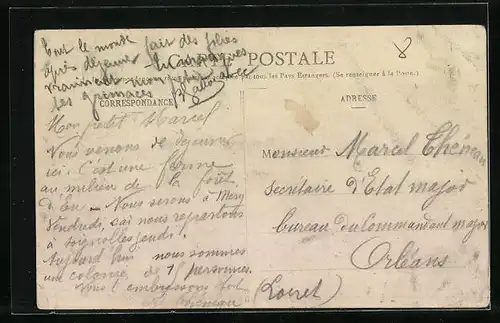 Tout le monde fait des folies
après déjeuner
les grimaces
POSTALE
tous les Pays Étrangers. (Se renseigner à la Poste.)
8
CORRESPONDANCE
ADRESSE
Mon petit Marcel
Nous venons de déjeuner
ici. C'est une ferme
au milieu de la forêt
d'Eu - Nous serons à Mesy
Vendredi, car nous repartons
à Soignolles jeudi.
Aujourd'hui nous sommes
une colonie de personnes.
Vous embrassons fort
Monsieur Marcel
Secrétaire d'Etat major
bureau du Commandant major
Orléans
(Loiret)